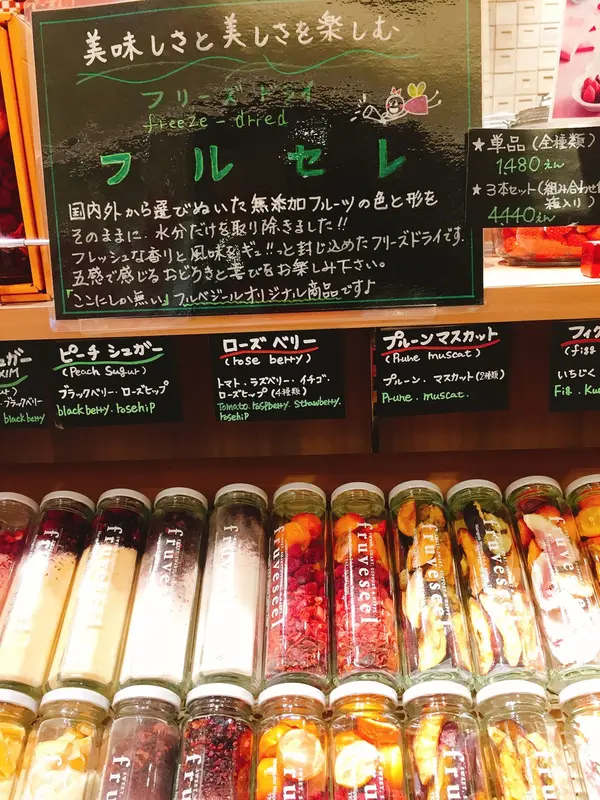 美味しさと美しさを楽しむ
フリーズドライ
freeze-dried
フルセレ
国内外から選びぬいた無添加フルーツの色と形を
そのままに、水分だけを取り除きました!!
フレッシュな香りと風味をギュ!!っと封じ込めたフリーズドライです.
五感で感じるおどろきと喜びをお楽しみ下さい。
「ここにしか無い」フルベジールオリジナル商品です♪
★単品(全種類)
1480えん
★3本セット(組み合わせ
箱入り)
4440えん
ガー
ブラックベリー
blackberry
ピーチシュガー
(Peach Sugur)
ブラックベリー・ローズヒップ
blackberry.rosehip
ローズベリー
(rose berry)
トマト・ラズベリー・イチゴ・
ローズヒップ(4種類)
Tomato.raspberry.strawberry.
rosehip
プルーンマスカット
(Prune muscat)
プルーン・マスカット(2種類)
Prune.muscat.
フィグ
(figg
いちじく
Fig.Ku
fruveseel
fruveseel
fruveseel
fruveseel
fruveseel
fruveseel
fruveseel
fruvesee
fruve
fruve
fru
fruve
fruv
fruve
fruv
fruve